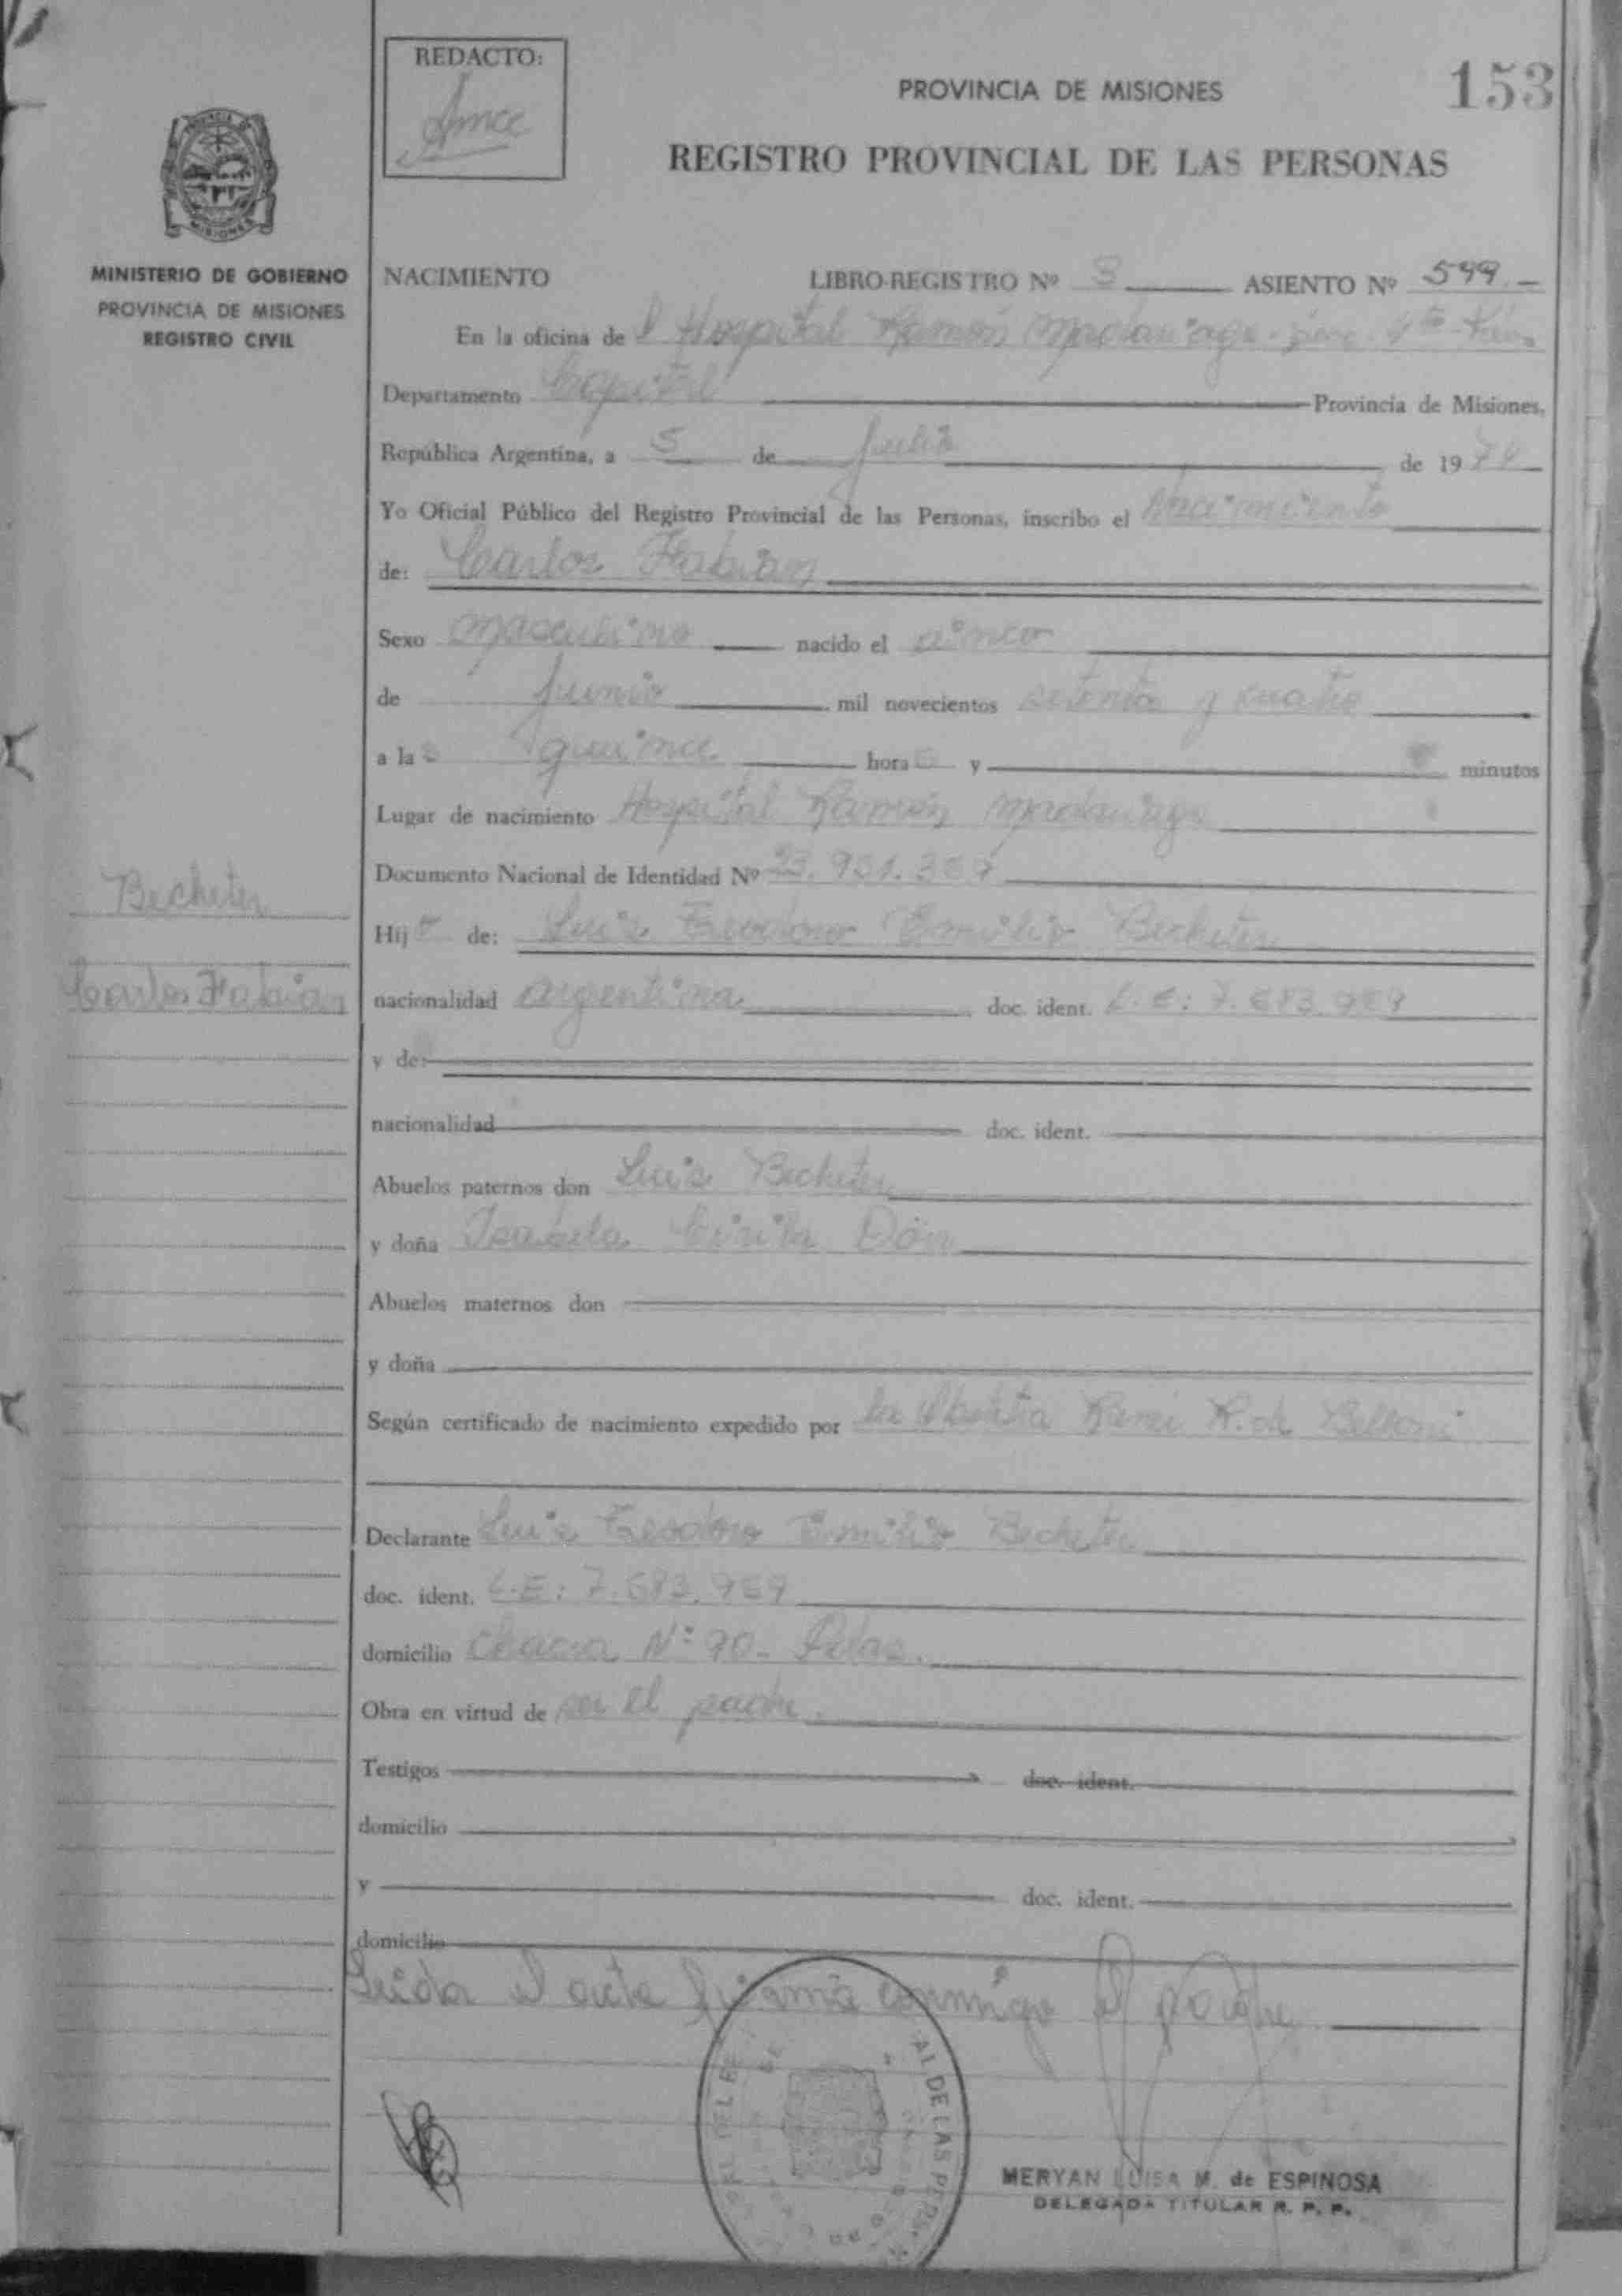 REDACTO:
PROVINCIA DE MISIONES
153
REGISTRO PROVINCIAL DE LAS PERSONAS
MINISTERIO DE GOBIERNO
PROVINCIA DE MISIONES
REGISTRO CIVIL
NACIMIENTO LIBRO-REGISTRO Nº 3 ASIENTO Nº 599
En la oficina de l Hospital Ramón Madariaga
Departamento Capital Provincia de Misiones,
República Argentina, a 5 de julio de 1974
Yo Oficial Público del Registro Provincial de las Personas, inscribo el Nacimiento
de: Carlos Fabian
Sexo masculino nacido el cinco
de junio mil novecientos setenta y cuatro
a las quince horas y minutos
Lugar de nacimiento Hospital Ramón Madariaga
Documento Nacional de Identidad Nº
Becheter
Hijo de: Luis Teodoro Emilio Becheter
Carlos Fabian
nacionalidad argentina doc. ident. L.E: 7.683.989
y de:
nacionalidad doc. ident.
Abuelos paternos don Luis Becheter
y doña
Abuelos maternos don
y doña
Según certificado de nacimiento expedido por la Obstetra R. de Belloni
Declarante Luis Teodoro Emilio Becheter
doc. ident. L.E: 7.683.989
domicilio Chacra Nº 90
Obra en virtud de ser el padre.
Testigos doc. ident.
domicilio
y doc. ident.
domicilio
Leida el acta firma conmigo el padre
AL DE LAS PERS
MERYAN LUISA M. de ESPINOSA
DELEGADA TITULAR R. P. P.